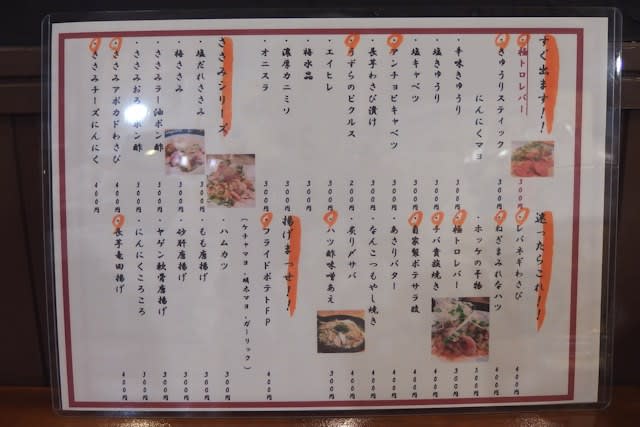 すぐ出ます！！
極トロレバー 300円
・きゅうりスティック
にんにくマヨ 300円
・辛味きゅうり 300円
・塩きゅうり
・塩キャベツ 300円
・アンチョビキャベツ 300円
・長芋わさび漬け 300円
・うずらのピクルス 200円
・エイヒレ
・梅水晶 300円
・濃厚カニミソ 300円
・オニスラ 300円
ささみシリーズ
・塩だれささみ 300円
・梅ささみ 300円
・ささみラー油ポン酢 300円
・ささみおろしポン酢 300円
・ささみアボカドわさび 400円
・ささみチーズにんにく 400円
迷ったらこれ！！
・レバネギわさび 400円
・ねぎまみれなハツ 400円
・ホッケの干物 300円
・極トロレバー 300円
・チバ貴族焼き 400円
・自家製ポテサラ 400円
・あさりバター 400円
・なんこつもやし焼き 400円
・炙り〆サバ 400円
・ハツ酢味噌あえ 300円
揚げまっせ！！
・フライドポテトFP 400円
(ケチャマヨ・明太マヨ・ガーリック)
・ハムカツ 300円
・もも唐揚げ 300円
・砂肝唐揚げ 300円
・ヤゲン軟骨唐揚げ 300円
・にんにくころころ 300円
・長芋竜田揚げ 400円